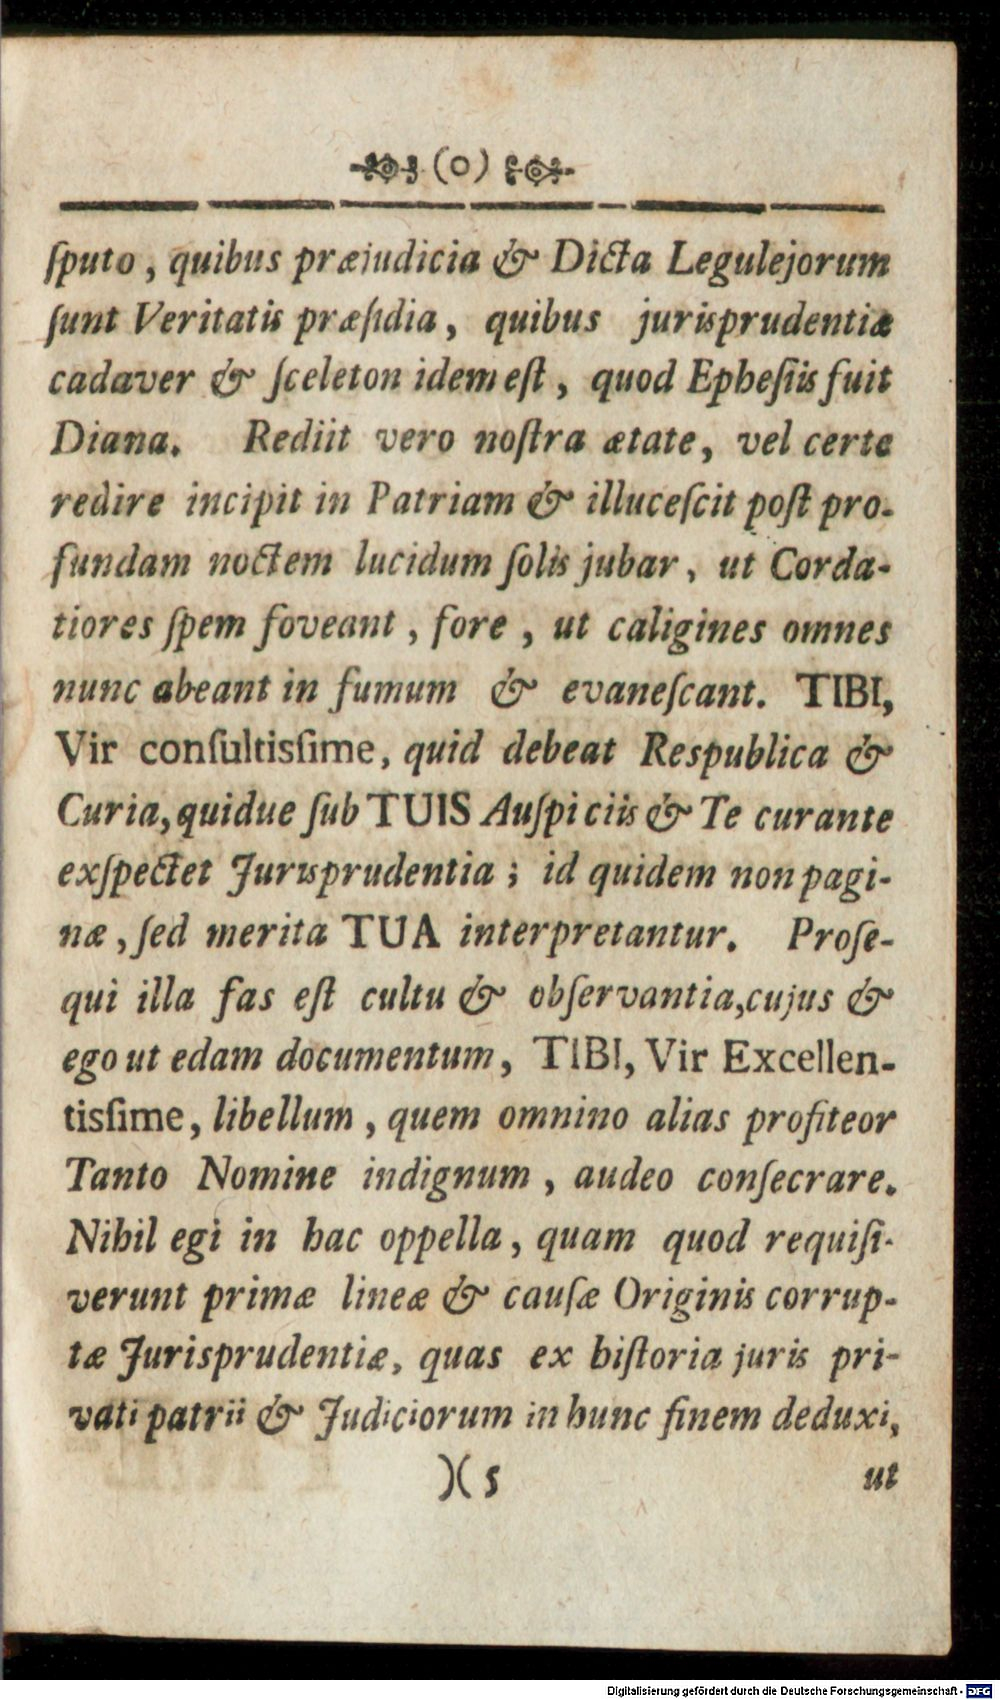 (o)
ſputo, quibus præjudicia & Dicta Legulejorum
ſunt Veritatis præſidia, quibus jurisprudentiæ
cadaver & ſceleton idem eſt, quod Epheſiis fuit
Diana. Rediit vero noſtra ætate, vel certe
redire incipit in Patriam & illuceſcit poſt pro-
fundam noctem lucidum ſolis jubar, ut Corda-
tiores ſpem foveant, fore, ut caligines omnes
nunc abeant in fumum & evaneſcant. TIBI,
Vir conſultisſime, quid debeat Respublica &
Curia, quidue ſub TUIS Auſpiciis & Te curante
exſpectet Jurisprudentia; id quidem non pagi-
næ, ſed merita TUA interpretantur. Proſe-
qui illa fas eſt cultu & obſervantia, cujus &
ego ut edam documentum, TIBI, Vir Excellen-
tisſime, libellum, quem omnino alias profiteor
Tanto Nomine indignum, audeo conſecrare.
Nihil egi in hac oppella, quam quod requiſi-
verunt primæ lineæ & cauſæ Originis corrup-
tæ Jurisprudentiæ, quas ex hiſtoria juris pri-
vati patrii & Judiciorum in hunc finem deduxi,
)( 5 ut
Digitalisierung gefördert durch die Deutsche Forschungsgemeinschaft - DFG